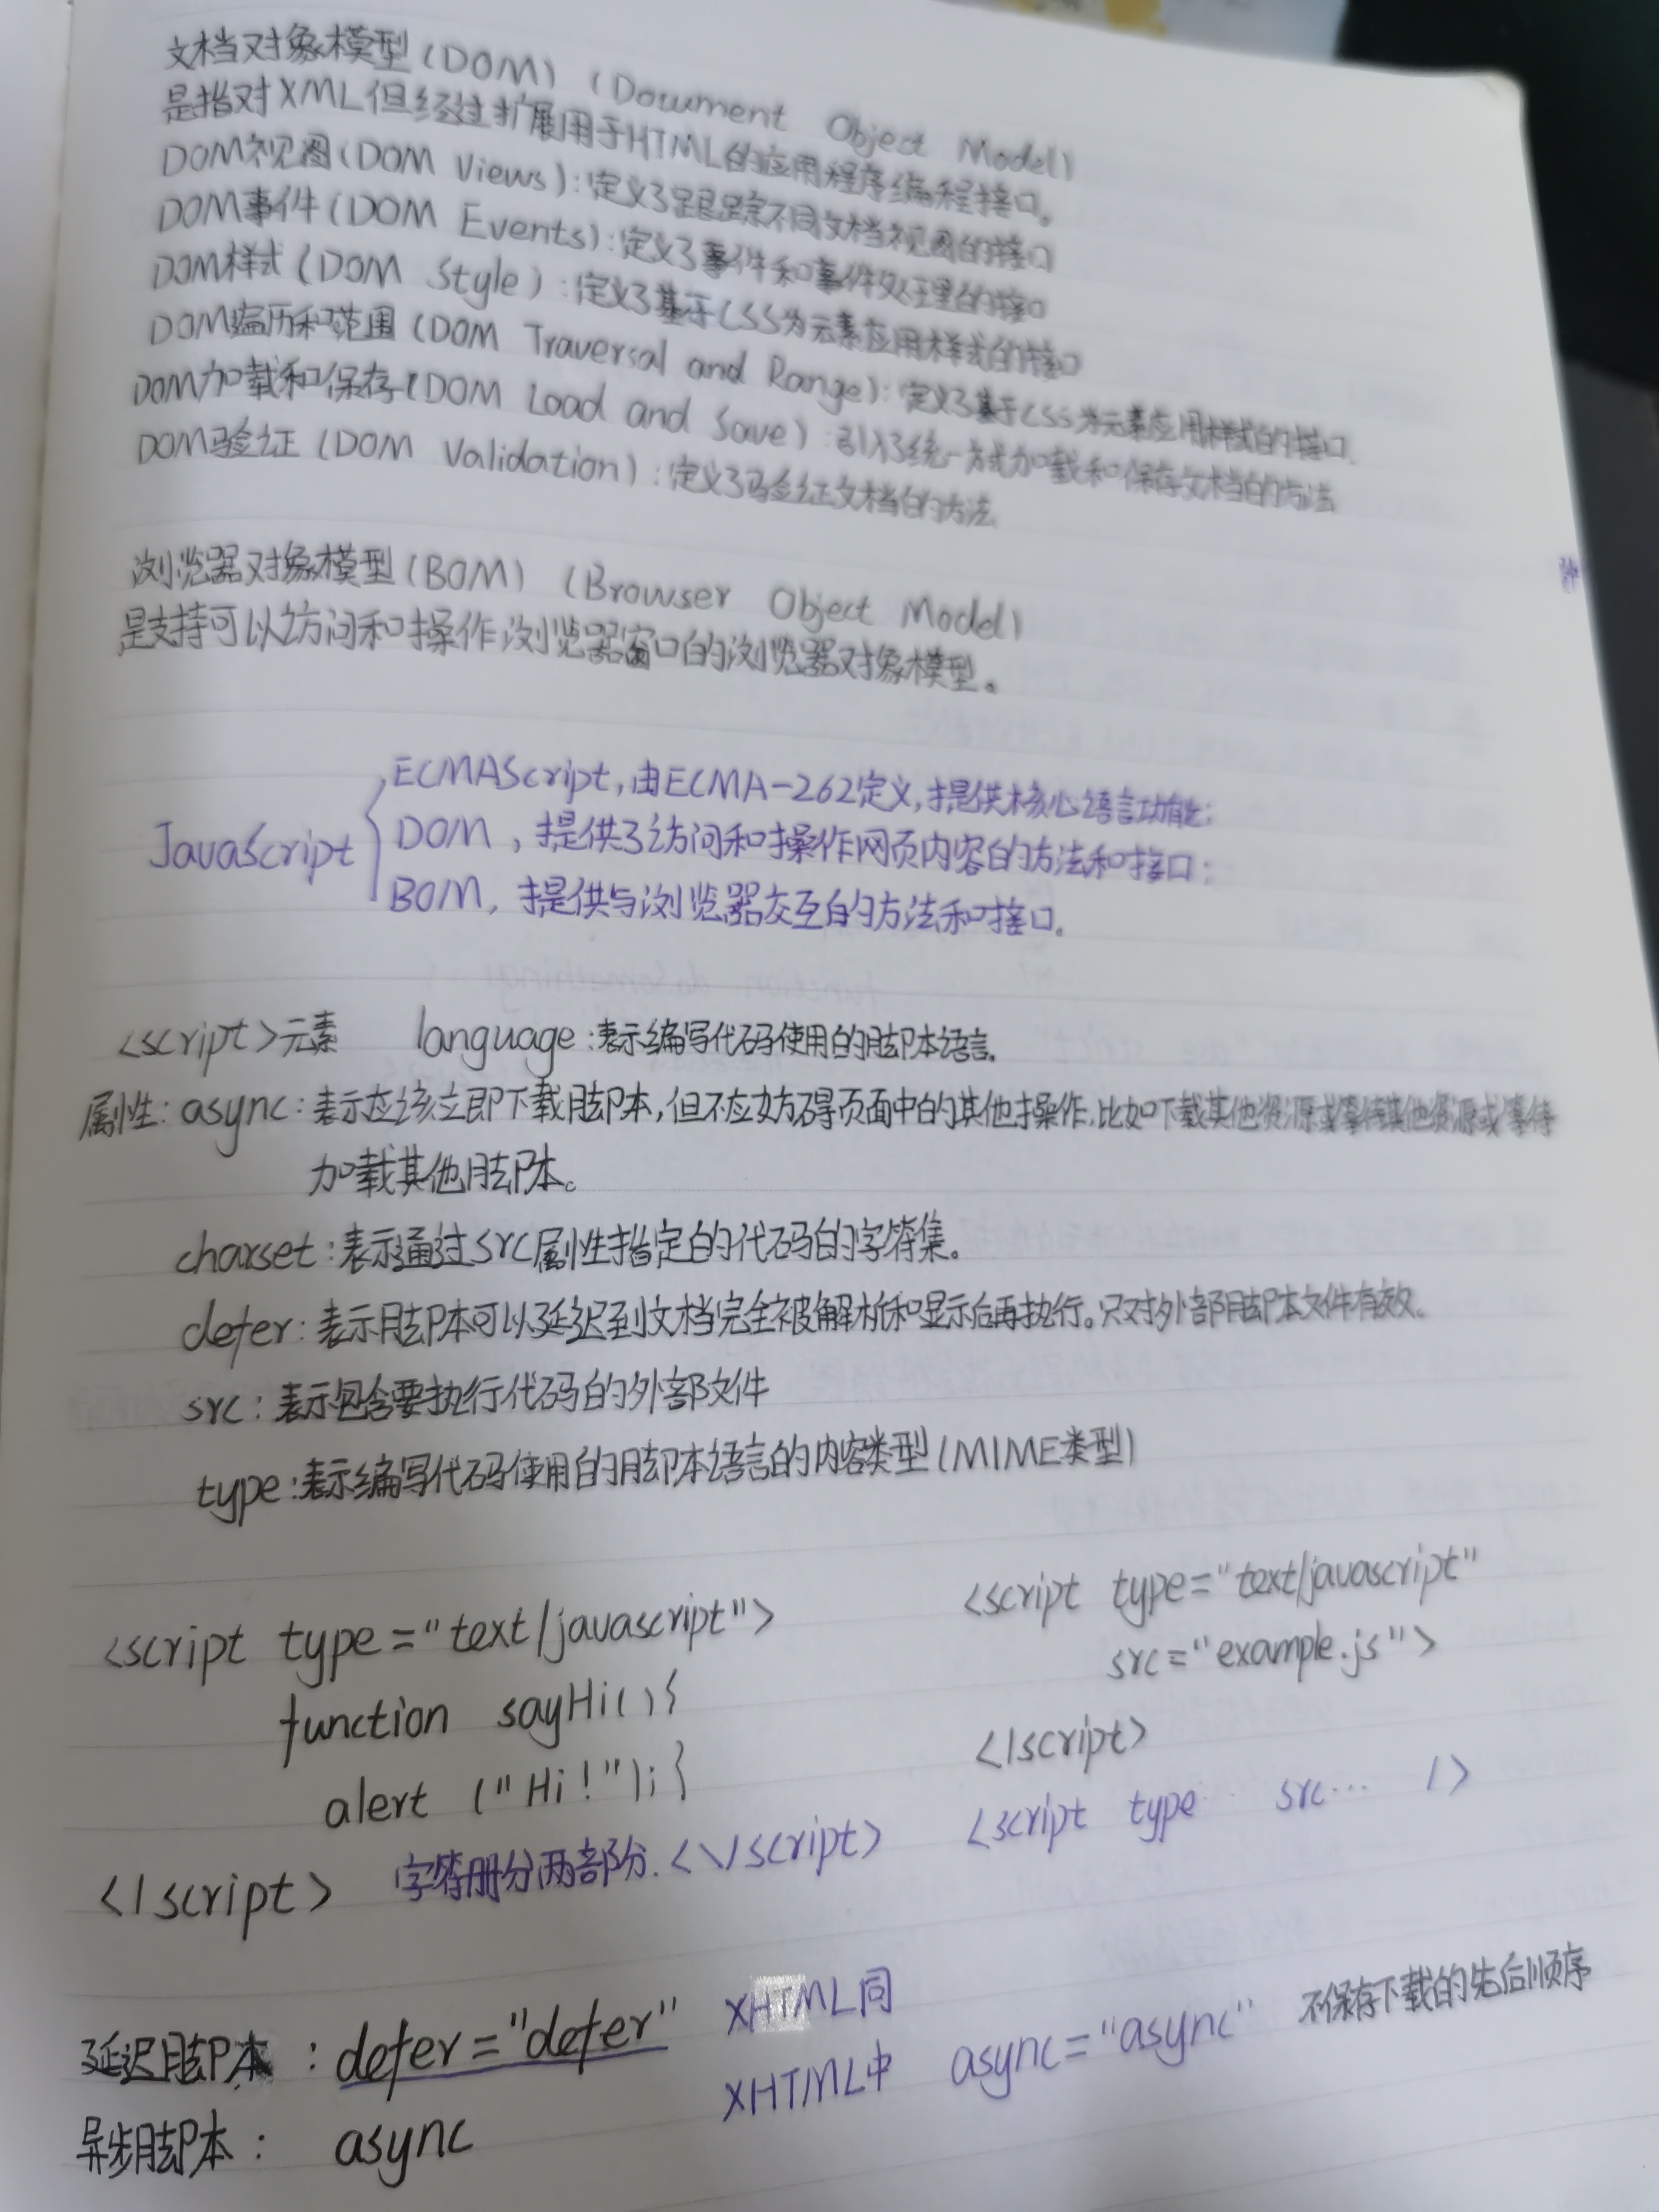 文档对象模型(DOM) (Document Object Model)
是指对XML但经过扩展用于HTML的应用程序编程接口。
DOM视图(DOM Views):定义了跟踪不同文档视图的接口
DOM事件(DOM Events):定义了事件和事件处理的接口
DOM样式(DOM Style):定义了基于CSS为元素应用样式的接口
DOM遍历和范围(DOM Traversal and Range):定义了基于CSS为元素应用样式的接口.
DOM加载和保存(DOM Load and Save):引入了统一方式加载和保存文档的方法
DOM验证(DOM Validation):定义了验证文档的方法
浏览器对象模型(BOM) (Browser Object Model)
是支持可以访问和操作浏览器窗口的浏览器对象模型。
ECMAScript,由ECMA-262定义,提供核心语言功能;
JavaScript
DOM,提供了访问和操作网页内容的方法和接口;
BOM,提供与浏览器交互的方法和接口。
<script>元素 language:表示编写代码使用的脚本语言.
属性:async:表示应该立即下载脚本,但不应妨碍页面中的其他操作,比如下载其他资源或等待其他资源或等待
加载其他脚本。
charset:表示通过src属性指定的代码的字符集。
defer:表示脚本可以延迟到文档完全被解析和显示后再执行。只对外部脚本文件有效。
src:表示包含要执行代码的外部文件
type:表示编写代码使用的脚本语言的内容类型(MIME类型)
<script type="text/javascript">
function sayHi(){
alert ("Hi!");}
</script> 字符册分两部分.<\/script>
<script type="text/javascript"
src="example.js">
</script>
<script type src... />
延迟脚本:defer="defer" XHTML同
异步脚本: async XHTML中 async="async" 不保存下载的先后顺序